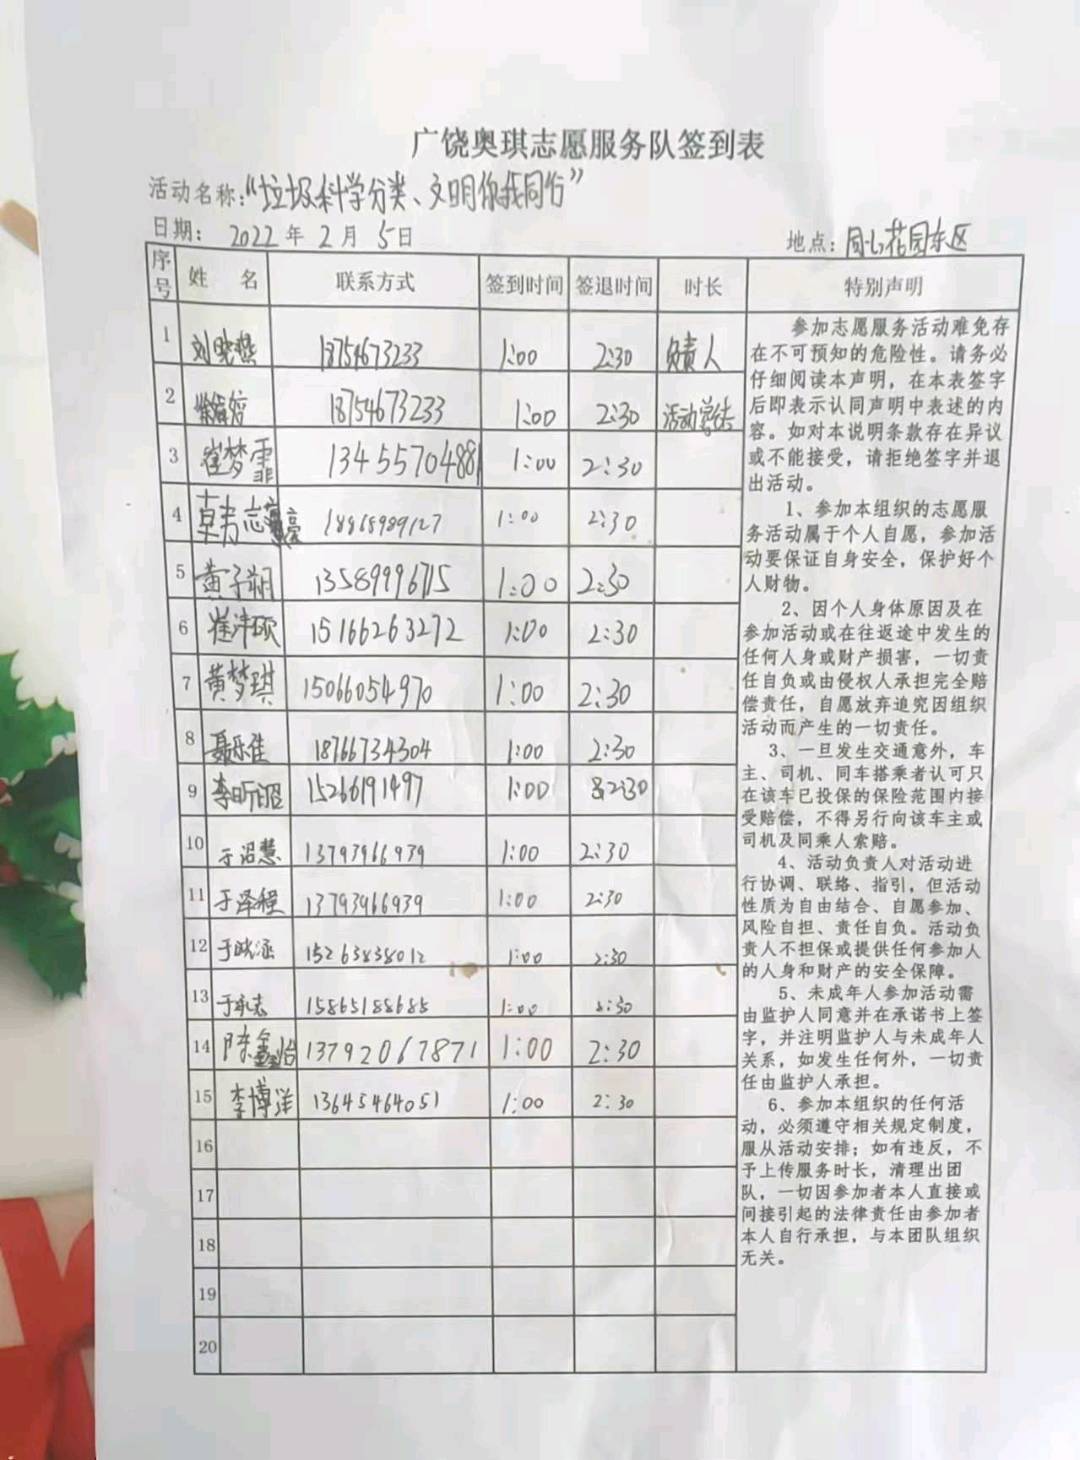 广饶奥琪志愿服务队签到表
活动名称:“垃圾科学分类、文明你我同行”
日期: 2022 年 2 月 5 日
地点: 同心花园东区
序号 姓 名 联系方式 签到时间 签退时间 时长 特别声明
1 刘晓燕 18754673233 1:00 2:30 负责人
2 18754673233 1:00 2:30 活动总结
3 崔梦霏 13455704881 1:00 2:30
4 志豪 18868989127 1:00 2:30
5 黄子朔 13589996715 1:00 2:30
6 崔沣硕 15166263272 1:00 2:30
7 黄梦琪 15066054970 1:00 2:30
8 聂乐佳 18766734304 1:00 2:30
9 李昕曈 15266191497 1:00 2:30
10 于沼慧 13793966939 1:00 2:30
11 于泽程 13793966939 1:00 2:30
12 于晓涵 15263838012 1:00 2:30
13 于永志 15865188685 1:00 2:30
14 陈鑫怡 13792067871 1:00 2:30
15 李博洋 13645464051 1:00 2:30
16
17
18
19
20
参加志愿服务活动难免存
在不可预知的危险性。请务必
仔细阅读本声明，在本表签字
后即表示认同声明中表述的内
容。如对本说明条款存在异议
或不能接受，请拒绝签字并退
出活动。
1、参加本组织的志愿服
务活动属于个人自愿，参加活
动要保证自身安全，保护好个
人财物。
2、因个人身体原因及在
参加活动或在往返途中发生的
任何人身或财产损害，一切责
任自负或由侵权人承担完全赔
偿责任，自愿放弃追究因组织
活动而产生的一切责任。
3、一旦发生交通意外，车
主、司机、同车搭乘者认可只
在该车已投保的保险范围内接
受赔偿，不得另行向该车主或
司机及同乘人索赔。
4、活动负责人对活动进
行协调、联络、指引，但活动
性质为自由结合、自愿参加、
风险自担、责任自负。活动负
责人不担保或提供任何参加人
的人身和财产的安全保障。
5、未成年人参加活动需
由监护人同意并在承诺书上签
字，并注明监护人与未成年人
关系，如发生任何外，一切责
任由监护人承担。
6、参加本组织的任何活
动，必须遵守相关规定制度，
服从活动安排；如有违反，不
予上传服务时长，清理出团
队，一切因参加者本人直接或
间接引起的法律责任由参加者
本人自行承担，与本团队组织
无关。